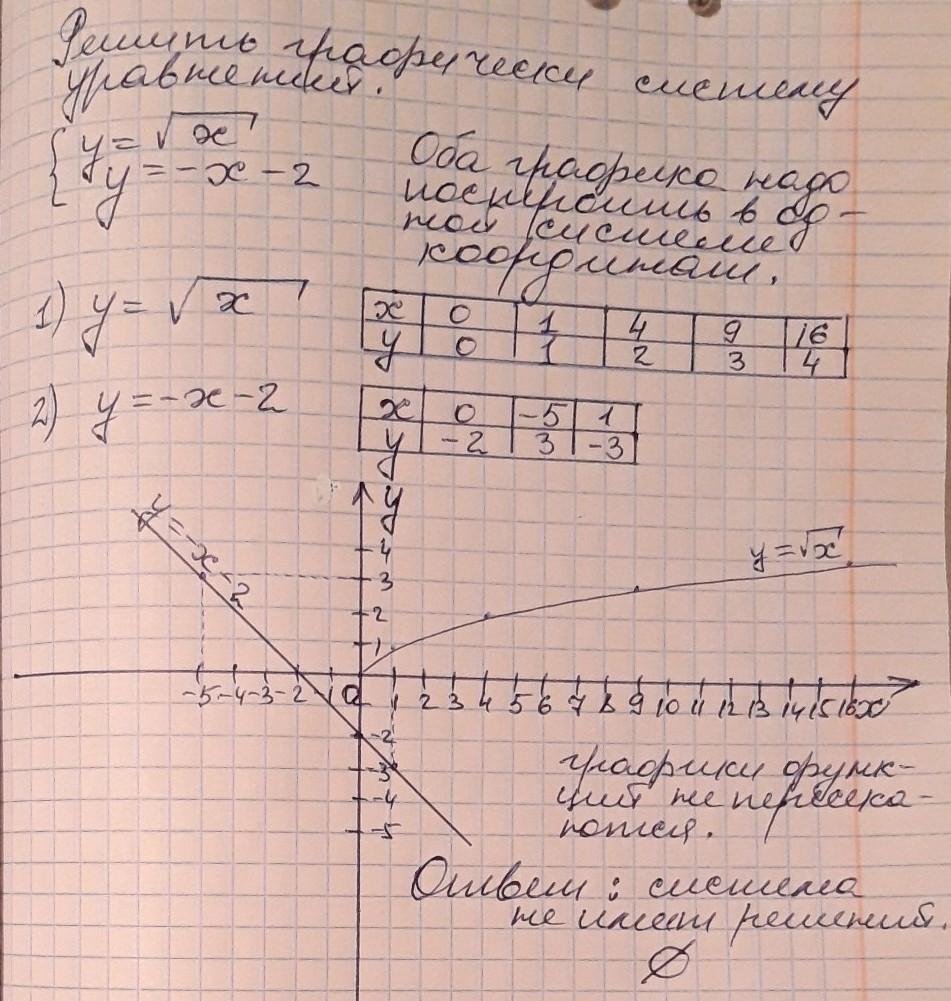 Решить графически систему
уравнений.
{ y = √x
y = -x - 2
Оба графика надо
построить в од-
ной системе
координат.
1) y = √x
x 0 1 4 9 16
y 0 1 2 3 4
2) y = -x - 2
x 0 -5 1
y -2 3 -3
y
y = -x - 2
4
3
2
1
y = √x
-5 -4 -3 -2 -1 0 1 2 3 4 5 6 7 8 9 10 11 12 13 14 15 16 x
-2
-3
-4
-5
графики функ-
ций не пересека-
ются.
Ответ: система
не имеет решений.
∅